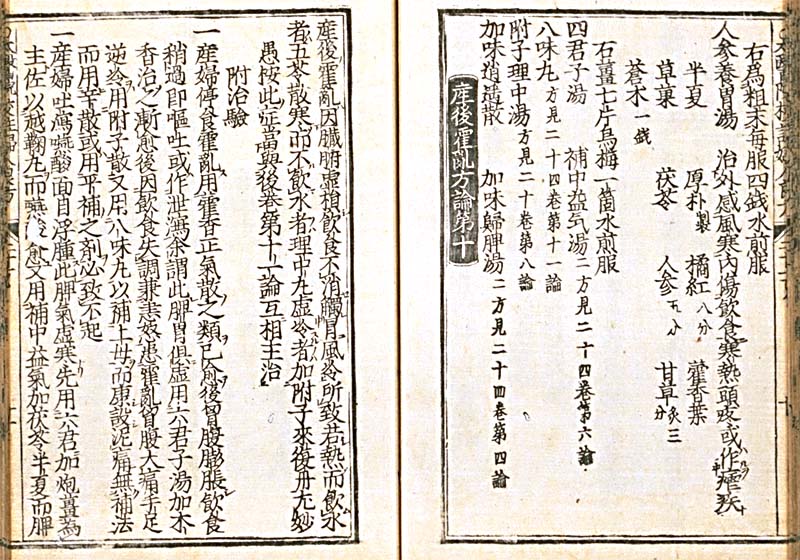 右為粗末每服四錢水煎服
人參養胃湯 治外感風寒內傷飲食寒熱頭疼或作瘧疾
半夏 厚朴製 橘紅八分 藿香葉
草菓 茯苓 人參五分 甘草炙三分
蒼朮一錢
右薑七片烏梅一箇水煎服
四君子湯 補中益氣湯二方見二十四卷第六論
八味丸方見二十四卷第十一論
附子理中湯方見二十卷第八論
加味逍遙散 加味歸脾湯二方見二十四卷第四論
產後霍亂方論第十
產後霍亂因臟腑虛損飲食不消觸冒風冷所致若熱而飲水
者五苓散寒而不飲水者理中丸虛冷者加附子來復丹尤妙
愚按此症當與後卷第十一論互相主治
附治驗
一產婦停食霍亂用藿香正氣散之類已愈後胃腹膨脹飲食
稍過即嘔吐或作泄瀉余謂此脾胃俱虛用六君子湯加木
香治之漸愈後因飲食失調兼恚怒患霍亂胷腹大痛手足
逆冷用附子散又用八味丸以補土母而康設泥痛無補法
而用辛散或用平補之劑必致不起
一產婦吐瀉嚥酸面目浮腫此脾氣虛寒先用六君加炮薑為
主佐以越鞠丸而嚥酸愈又用補中益氣加茯苓半夏而脾